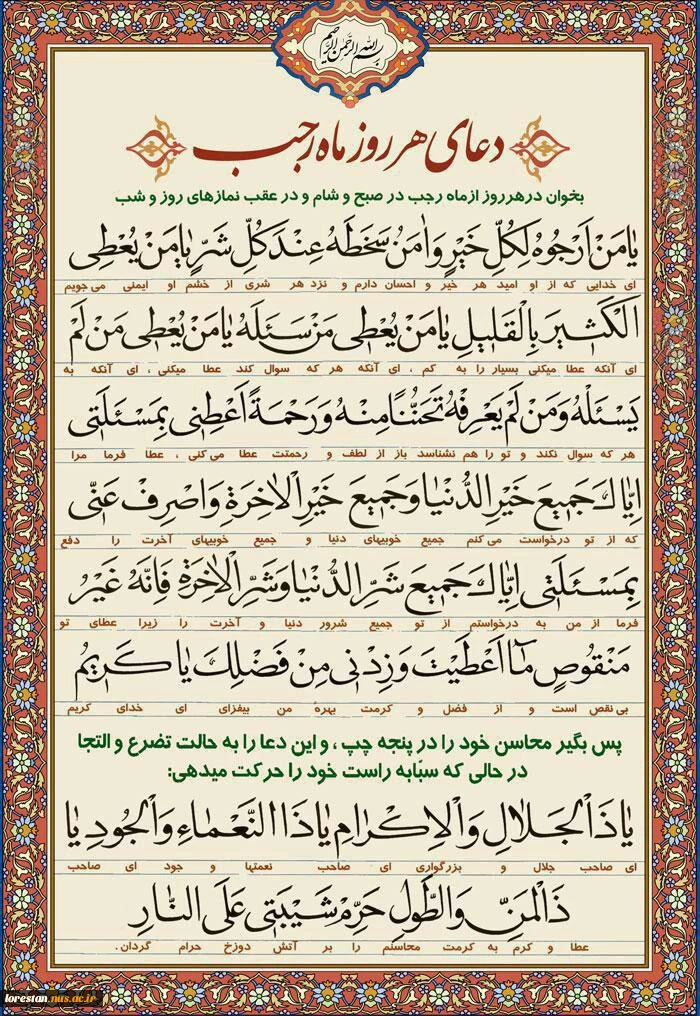 بسم الله الرحمن الرحیم
دعای هر روز ماه رجب
بخوان در هر روز از ماه رجب در صبح و شام و در عقب نمازهای روز و شب
يٰا مَنْ اَرْجُوهُ لِكُلِّ خَيْرٍ وَاٰمَنُ سَخَطَهُ عِنْدَ كُلِّ شَرٍّ يٰا مَنْ يُعْطِى
ای خدایی که از او امید هر خیر و احسان دارم و نزد هر شری از خشم او ایمنی می‌جویم
الْكَثيرَ بِالْقَليلِ يٰا مَنْ يُعْطى مَنْ سَئَلَهُ يٰا مَنْ يُعْطى مَنْ لَمْ
ای آنکه عطا میکنی بسیار را به کم ، ای آنکه هر که سوال کند عطا میکنی ، ای آنکه به
يَسْئَلْهُ وَمَنْ لَمْ يَعْرِفْهُ تَحَنُّنًا مِنْهُ وَرَحْمَةً اَعْطِنى بِمَسْئَلَتى
هر که سوال نکند و تو را هم نشناسد باز از لطف و رحمتت عطا می‌کنی ، عطا فرما مرا
اِيّٰاكَ جَميعَ خَيْرِ الدُّنْيٰا وَجَميعَ خَيْرِ الْاٰخِرَةِ وَاصْرِفْ عَنّى
که از تو درخواست می‌کنم جمیع خوبیهای دنیا و جمیع خوبیهای آخرت را دفع
بِمَسْئَلَتى اِيّٰاكَ جَميعَ شَرِّ الدُّنْيٰا وَشَرِّ الْاٰخِرَةِ فَاِنَّهُ غَيْرُ
فرما از من به درخواستم از تو جمیع شرور دنیا و آخرت را زیرا عطای تو
مَنْقُوصٍ مٰا اَعْطَيْتَ وَزِدْنى مِنْ فَضْلِكَ يٰا كَريمُ
بی نقص است و از فضل و کرمت بهرهٔ من بیفزای ای خدای کریم
پس بگیر محاسن خود را در پنجه چپ ، و این دعا را به حالت تضرع و التجا
در حالی که سبّابه راست خود را حرکت میدهی:
يٰا ذَا الْجَلٰالِ وَالْاِكْرٰامِ يٰا ذَا النَّعْمٰاءِ وَالْجُودِ يٰا
ای صاحب جلال و بزرگواری ای صاحب نعمتها و جود ای صاحب
ذَا الْمَنِّ وَالطَّوْلِ حَرِّمْ شَيْبَتى عَلَى النّٰارِ
عطا و کرم به کرمت محاسنم را بر آتش دوزخ حرام گردان.
lorestan.nus.ac.ir